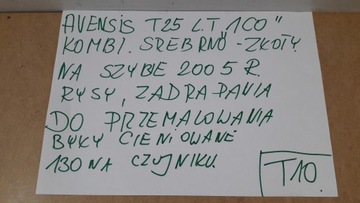 AVENSIS T25 L.T "1C0"
KOMBI. SREBRNO-ZŁOTY
NA SZYBE 2005 R.
RYSY, ZADRAPANIA
DO PRZEMALOWANIA
BYŁY CIENIOWANE
130 NA CZUJNIKU.
T10.